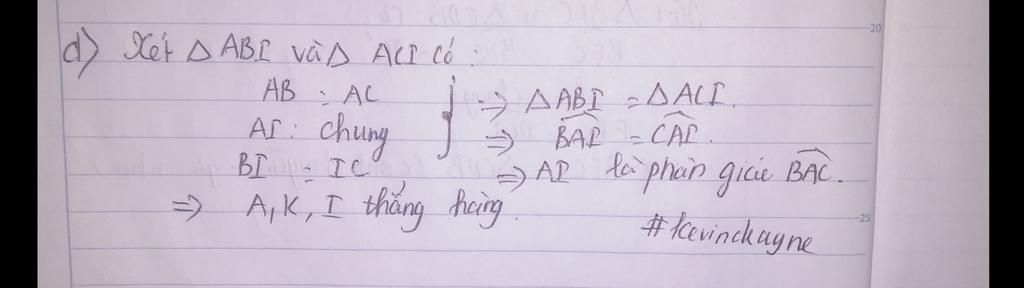 d) Xét △ ABI và △ ACI có :
AB = AC
AI : chung } => △ ABI = △ ACI.
=> BAI = CAI.
BI = IC => AI là phân giác BAC.
=> A, K, I thẳng hàng.
#kevinchayne
20
25